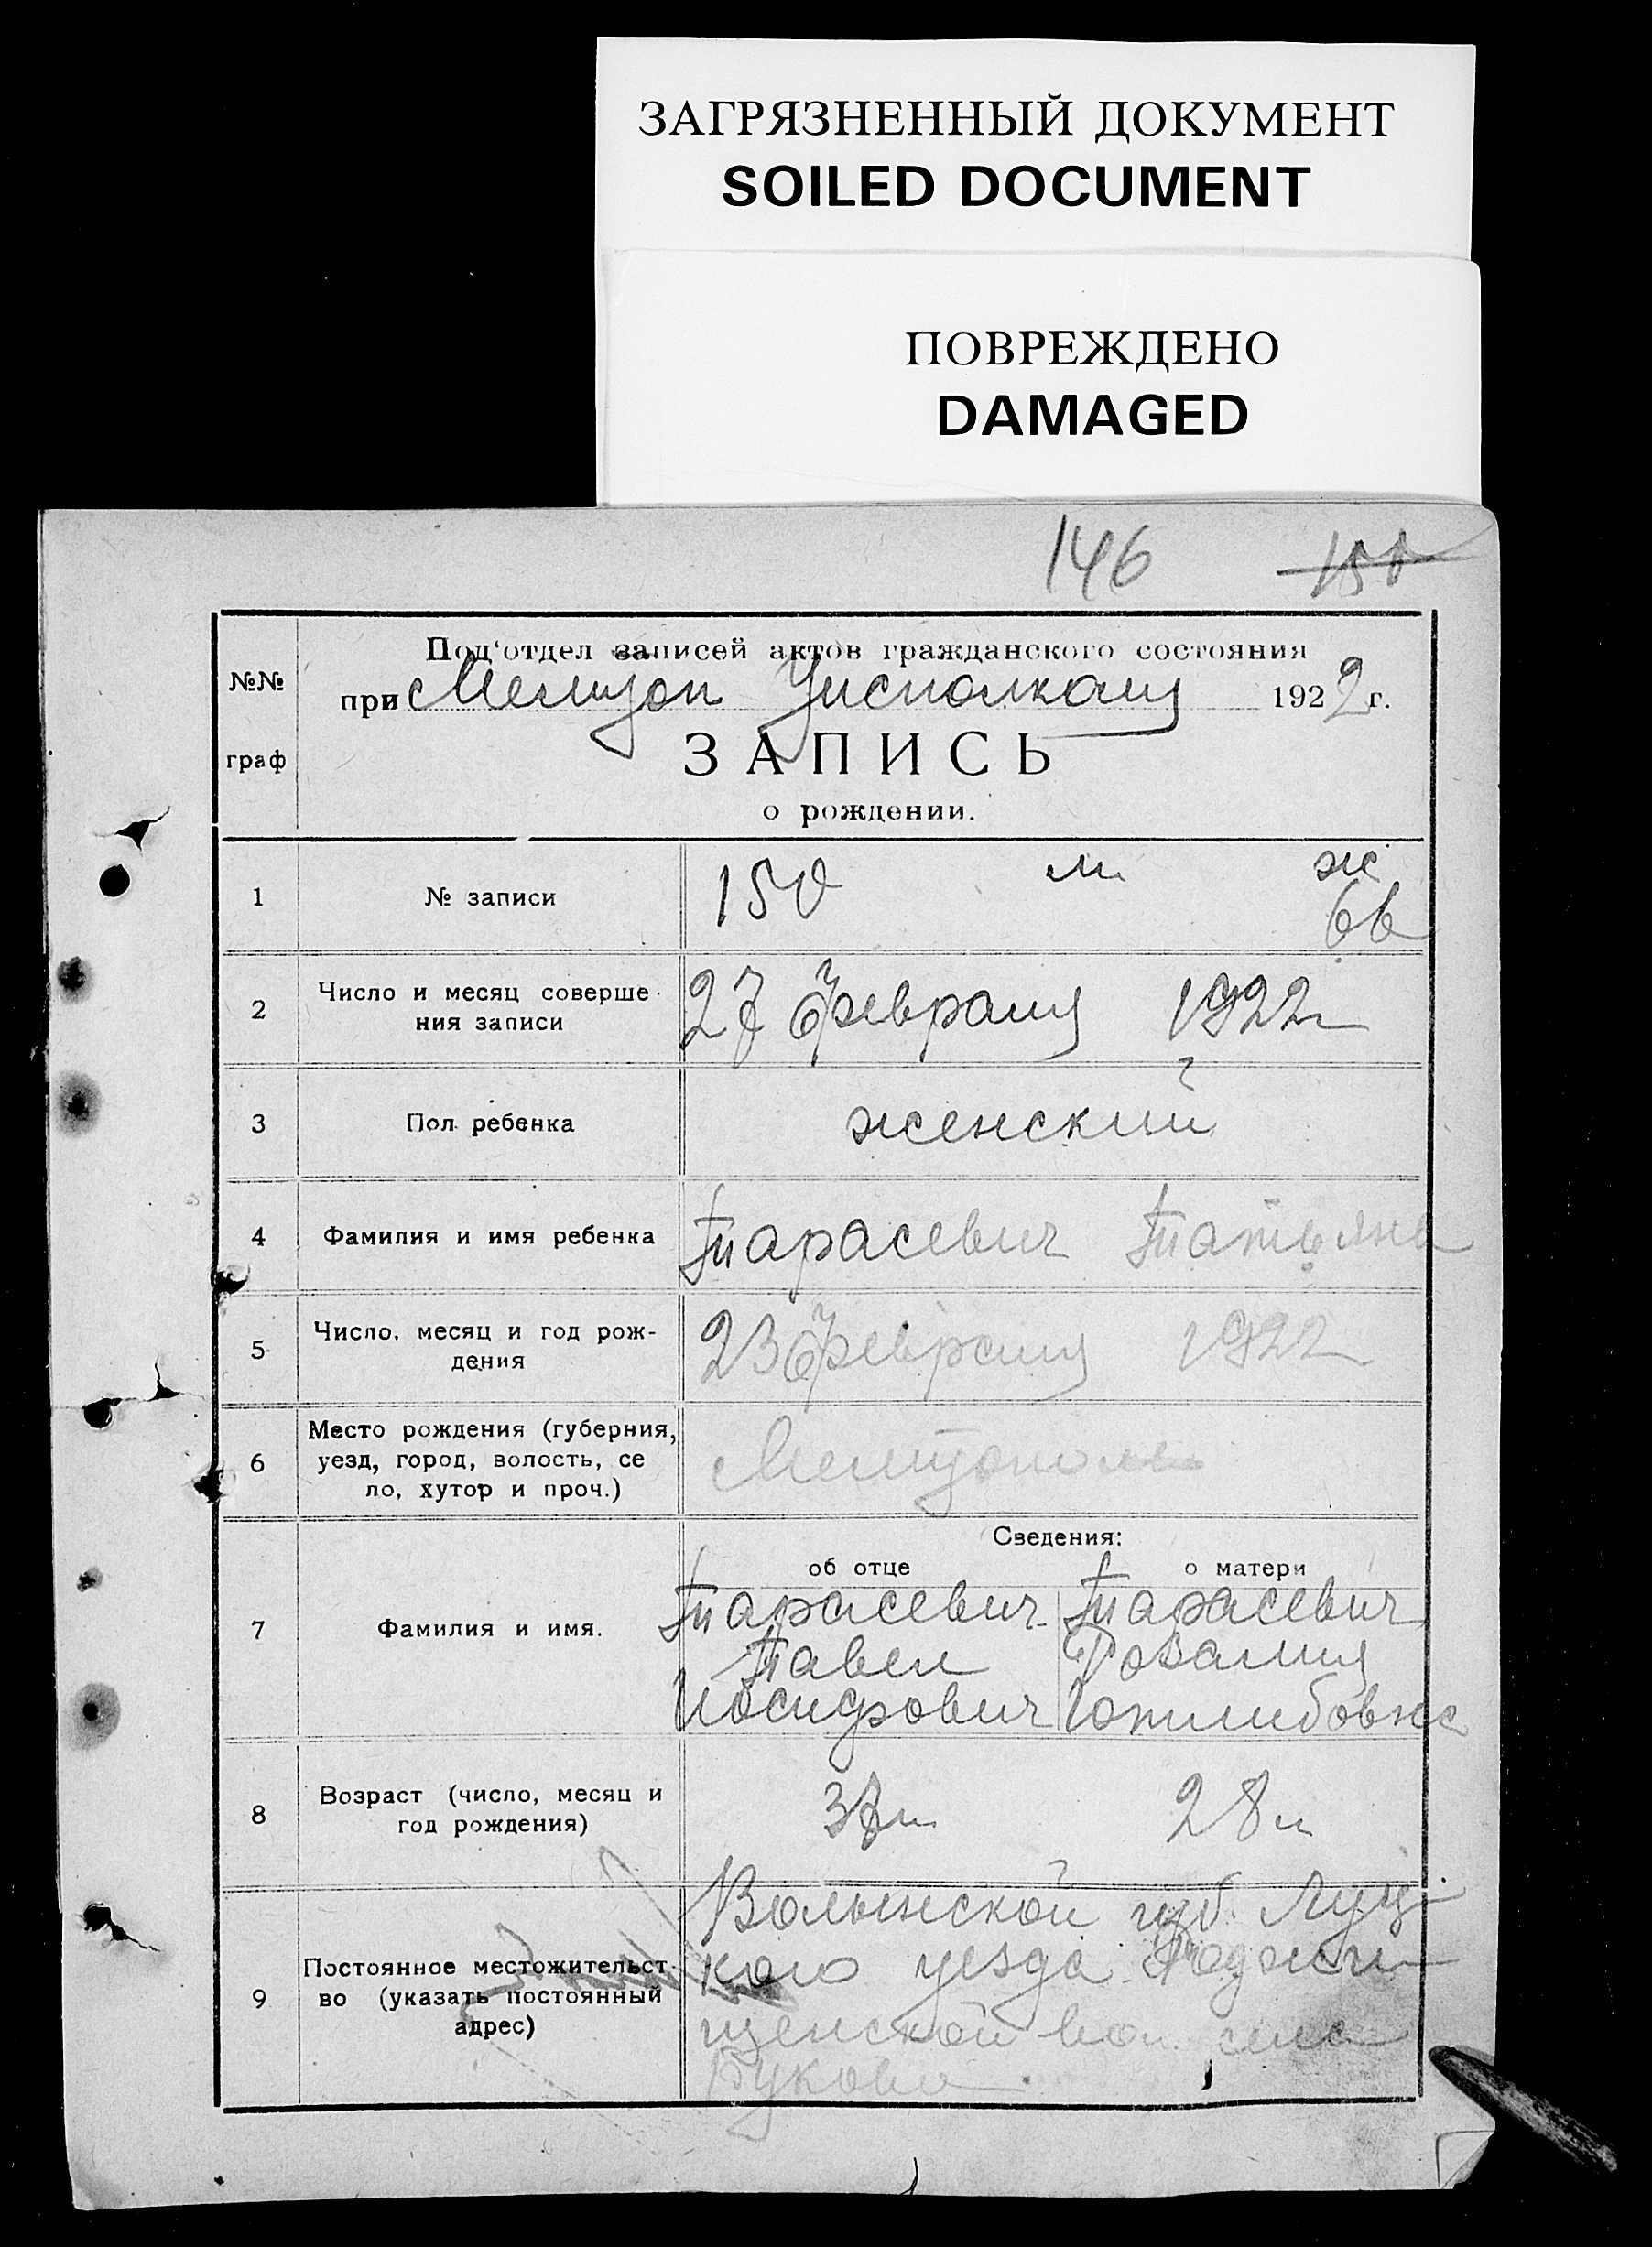 ЗАГРЯЗНЕННЫЙ ДОКУМЕНТ
SOILED DOCUMENT
ПОВРЕЖДЕНО
DAMAGED
146 150
№№ граф
Под‘отдел записей актов гражданского состояния
при Мелитоп Уисполкоми 1922 г.
ЗАПИСЬ
о рождении.
1 № записи 150 м ж
66
2 Число и месяц соверше-
ния записи 27 февраля 1922
3 Пол ребенка женский
4 Фамилия и имя ребенка Тарасевич Татьяна
5 Число, месяц и год рож-
дения 23 февраля 1922
6 Место рождения (губерния,
уезд, город, волость, се
ло, хутор и проч.) Мелитополь
Сведения:
об отце о матери
7 Фамилия и имя. Тарасевич Тарасевич
Павел Розалия
Иосифович Готлибовна
8 Возраст (число, месяц и
год рождения) 37 л 28 л
9 Постоянное местожительст-
во (указать постоянный
адрес)
Волынской губ. Луц
кого уезда Рожи
щенской вол. села
Букова